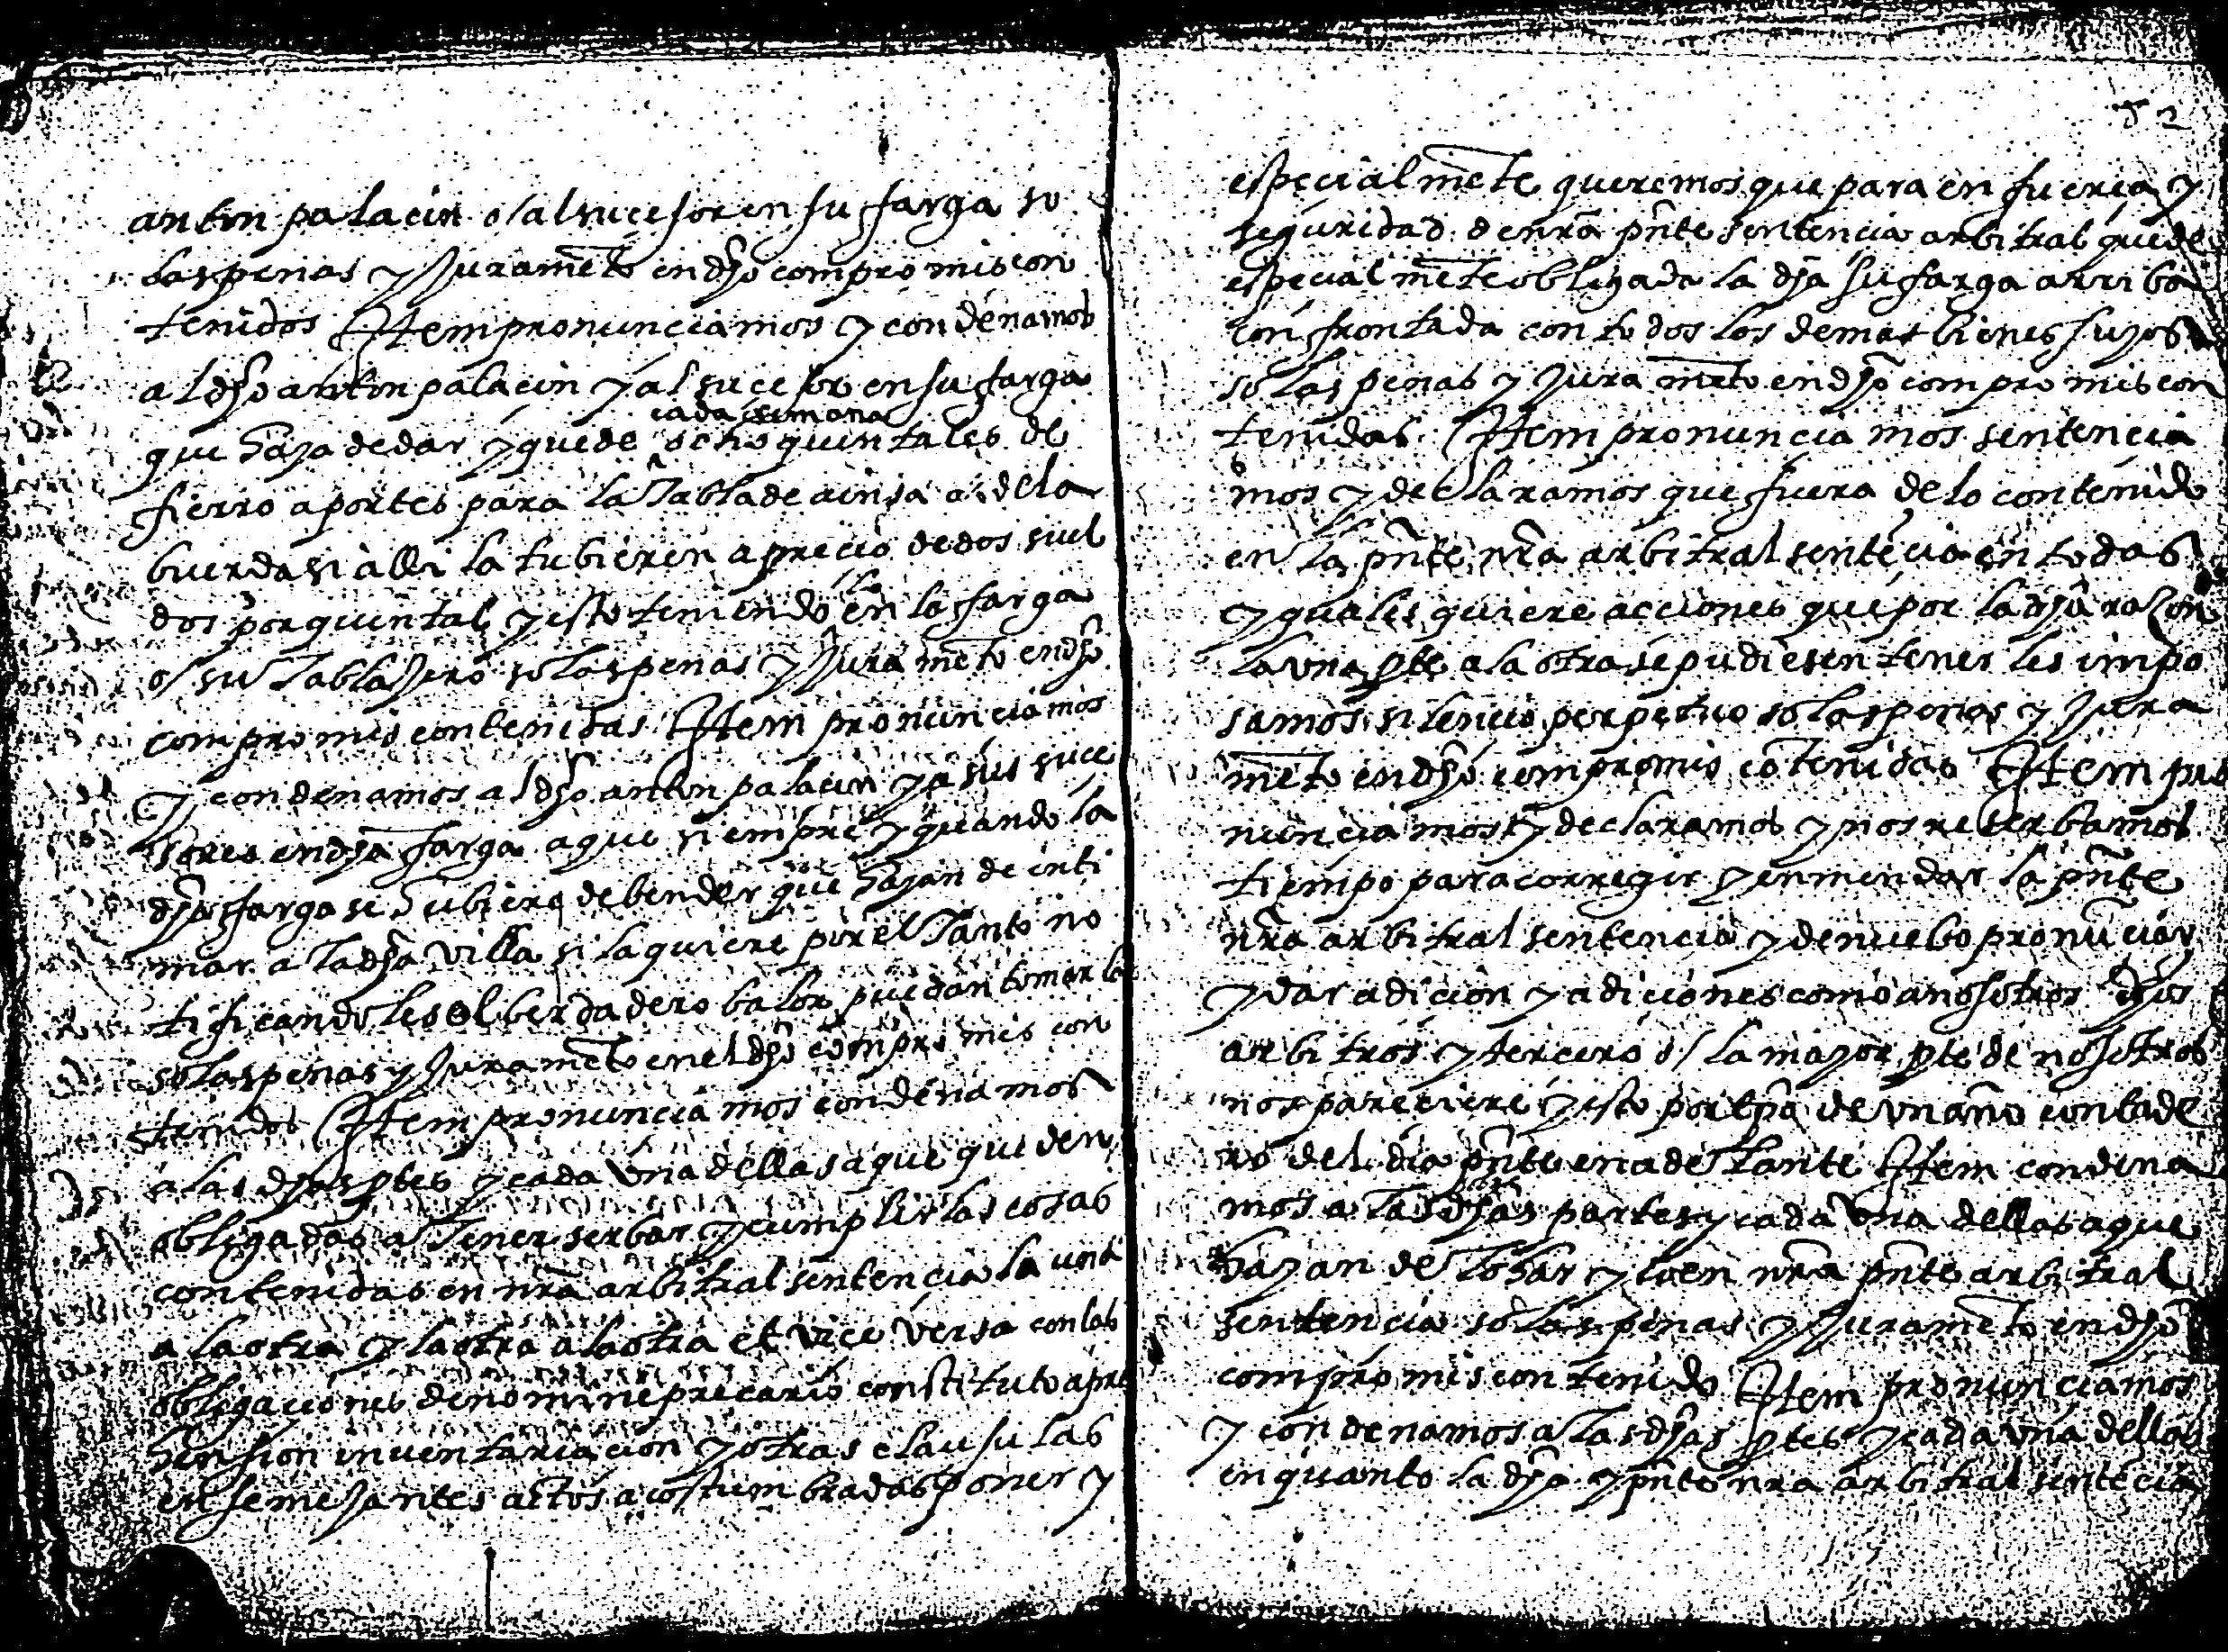 anton palacin o/ al sucesor en su farga so
las penas y Juramẽto en dho compromis con
tenidos Item pronunciamos y condenamos
al dho anton palacin y al sucesor en su farga
cada semana
que haya de dar y quede ocho quintales de
fierro a portes para la Tabla de ainsa o/ de la
buerda si alli la tubieren a precio de dos suel
dos por quintal y esto teniendolo en la farga
o/ su Tablajero so las penas y Juramẽto en dho
compromis contenidas Item pronunciamos
y condenamos al dho anton palacin y a sus suce
sores en dha farga a que siempre y quando la
dha farga se hubiere de bender que hayan de inti
mar a la dha villa si la quiere por el Tanto no
tificandoles el berdadero balor puedan tomarla
so las penas y Juramẽto en el dho cõmpromis con
tenidos Item pronunciamos condenamos
a las dhas ptes y cada vna dellas a que queden
obligadas a Tener serbar y cumplir las cosas
contenidas en nrã arbitral sentencia la una
a la otra y la otra a la otra et vice versa con las
obligaciones de nomine precario constituto apre
hension inventariacion y otras clausulas
en semejantes actos acostumbradas poner y
52
especialmẽte queremos que para en fuerça y
seguridad de nrã pñte sentencia arbitral quede
especialmẽte obligada la dha su farga arriba
confrontada con todos los demas bienes suyos
so las penas y Juramẽto en dho compromis con
tenidas Item pronunciamos sentencia
mos y declaramos que fuera de lo contenido
en la pñte nrã arbitral sentẽcia en todas
y quales quiere acciones que por la dha razon
la vna pte a la otra se pudiesen tener les impo
samos silencio perpetuo so las penas y Jura
mẽto en dho compromis cõtenidas Item pro
nunciamos y declaramos y nos reserbamos
tiempo para corregir y enmendar la pñte
nrã arbitral sentencia y de nuebo pronũciar
y dar adicion y adiciones como a nosotros dhos
arbitros y tercero o/ la mayor pte de nosotros
nos pareciere y esto por tpõ de vn año contade
ro del dia pñte en adelante Item condena
mos a las dhas partes y cada vna dellas a que
hayan de lohar y loen nrã pñte arbitral
sentencia so las penas y Juramẽto en dho
compromis contenido Item pronunciamos
y condenamos a las dhas ptes y cada vna dellas
en quanto la dha y pñte nra arbitral sentẽcia